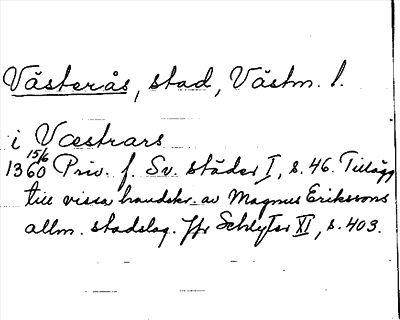 Västerås, stad, Västm. l.
i Væstrars
1360 15/6 Priv. f. Sv. städer I, s. 46. Tillägg
till vissa handskr. av Magnus Erikssons
allm. stadslag. Jfr Schlyter XI, s. 403.